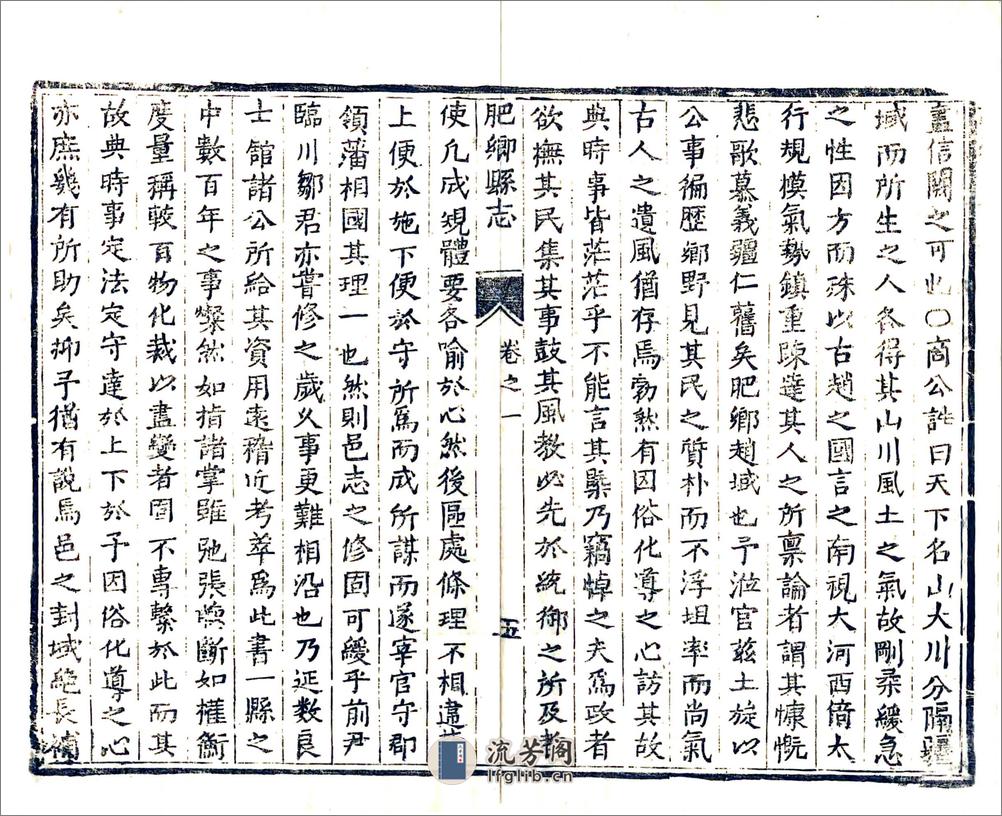 盡信闕之可也〇商公誥曰天下名山大川分隔疆
域而所生之人各得其山川風土之氣故剛柔緩急
之性因方而殊以古趙之國言之南視大河西倚太
行規模氣勢鎮重踈達其人之所禀論者謂其慷慨
悲歌慕義彊仁舊矣肥鄉趙域也予涖官兹土旋以
公事徧歷鄉野見其民之質朴而不浮坦率而尚氣
古人之遺風猶存焉勃然有因俗化導之心訪其故
與時事皆茫茫乎不能言其槩乃竊悼之夫為政者
欲撫其民集其事鼓其風教必先於統御之所及者
肥鄉縣志
卷之一
五
使凡成規體要各喻於心然後區處條理不相違
上便於施下便於守所為而成所謀而遂宰官守郡
領藩相國其理一也然則邑志之修固可緩乎前尹
臨川鄒君亦嘗修之歲久事更難相沿也乃延数良
士館諸公所給其資用遠稽近考萃為此書一縣之
中數百年之事燦然如指諸掌雖弛張喚斷如權衡
度量稱較百物化裁以盡變者固不專繫於此而其
故典時事定法定守達於上下於予因俗化導之心
亦庶幾有所助矣抑予猶有說焉邑之封域絕長補
流芳閣
lfglib.cn